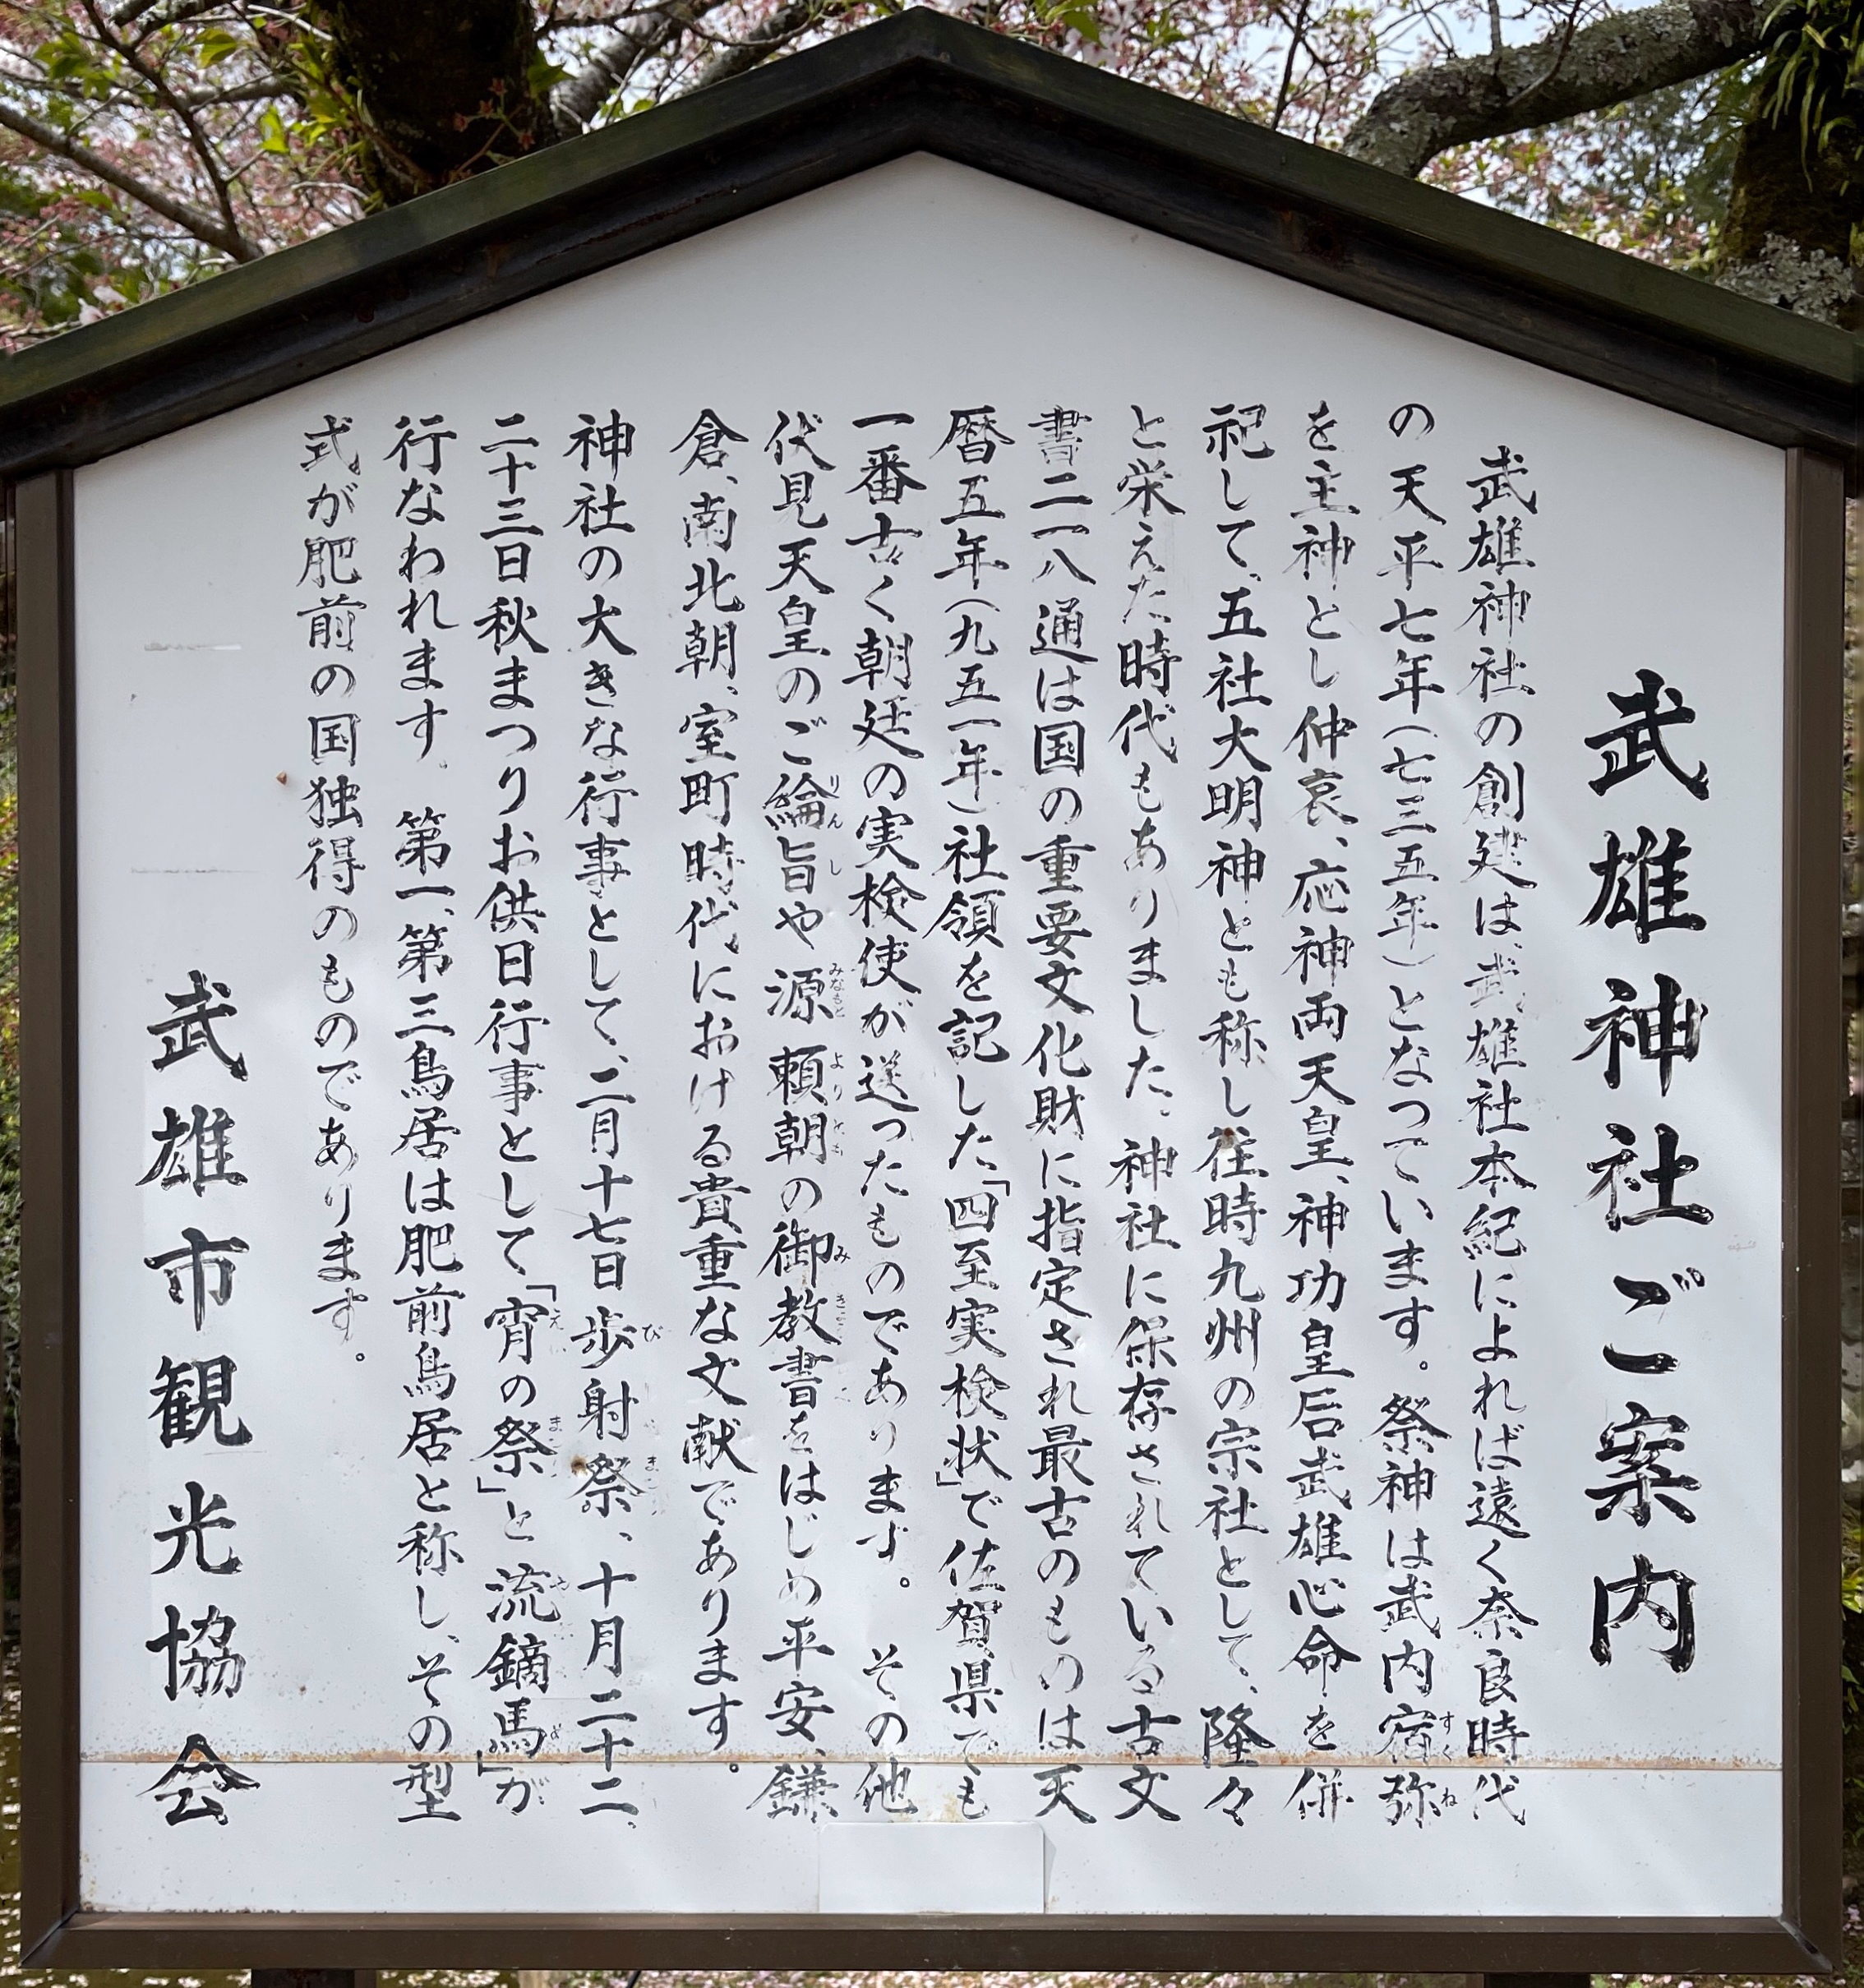 武雄神社ご案内
武雄神社の創建は、武雄社本紀によれば遠く奈良時代
の天平七年(七三五年)となっています。祭神は武内宿弥
を主神とし仲哀、応神両天皇、神功皇后武雄心命を併
祀して、五社大明神とも称し往時九州の宗社として、隆々
と栄えた時代もありました。神社に保存されている古文
書二一八通は国の重要文化財に指定され最古のものは天
暦五年(九五一年)社領を記した「四至実検状」で佐賀県でも
一番古く朝廷の実検使が送ったものであります。その他
伏見天皇のご綸旨や源頼朝の御教書をはじめ平安、鎌
倉、南北朝、室町時代における貴重な文献であります。
神社の大きな行事として、二月十七日歩射祭、十月二十二、
二十三日秋まつりお供日行事として「宵の祭」と流鏑馬」が
行なわれます。第一、第三鳥居は肥前鳥居と称し、その型
式が肥前の国独得のものであります。
武雄市観光協会